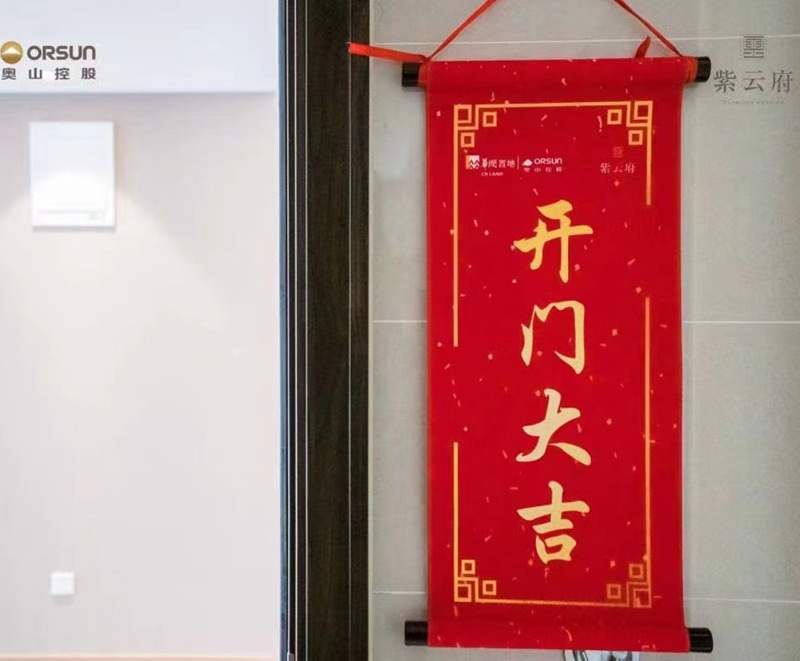 ORSUN
奥山控股
紫云府
華潤置地
CR LAND
ORSUN
奥山控股
紫云府
开门大吉